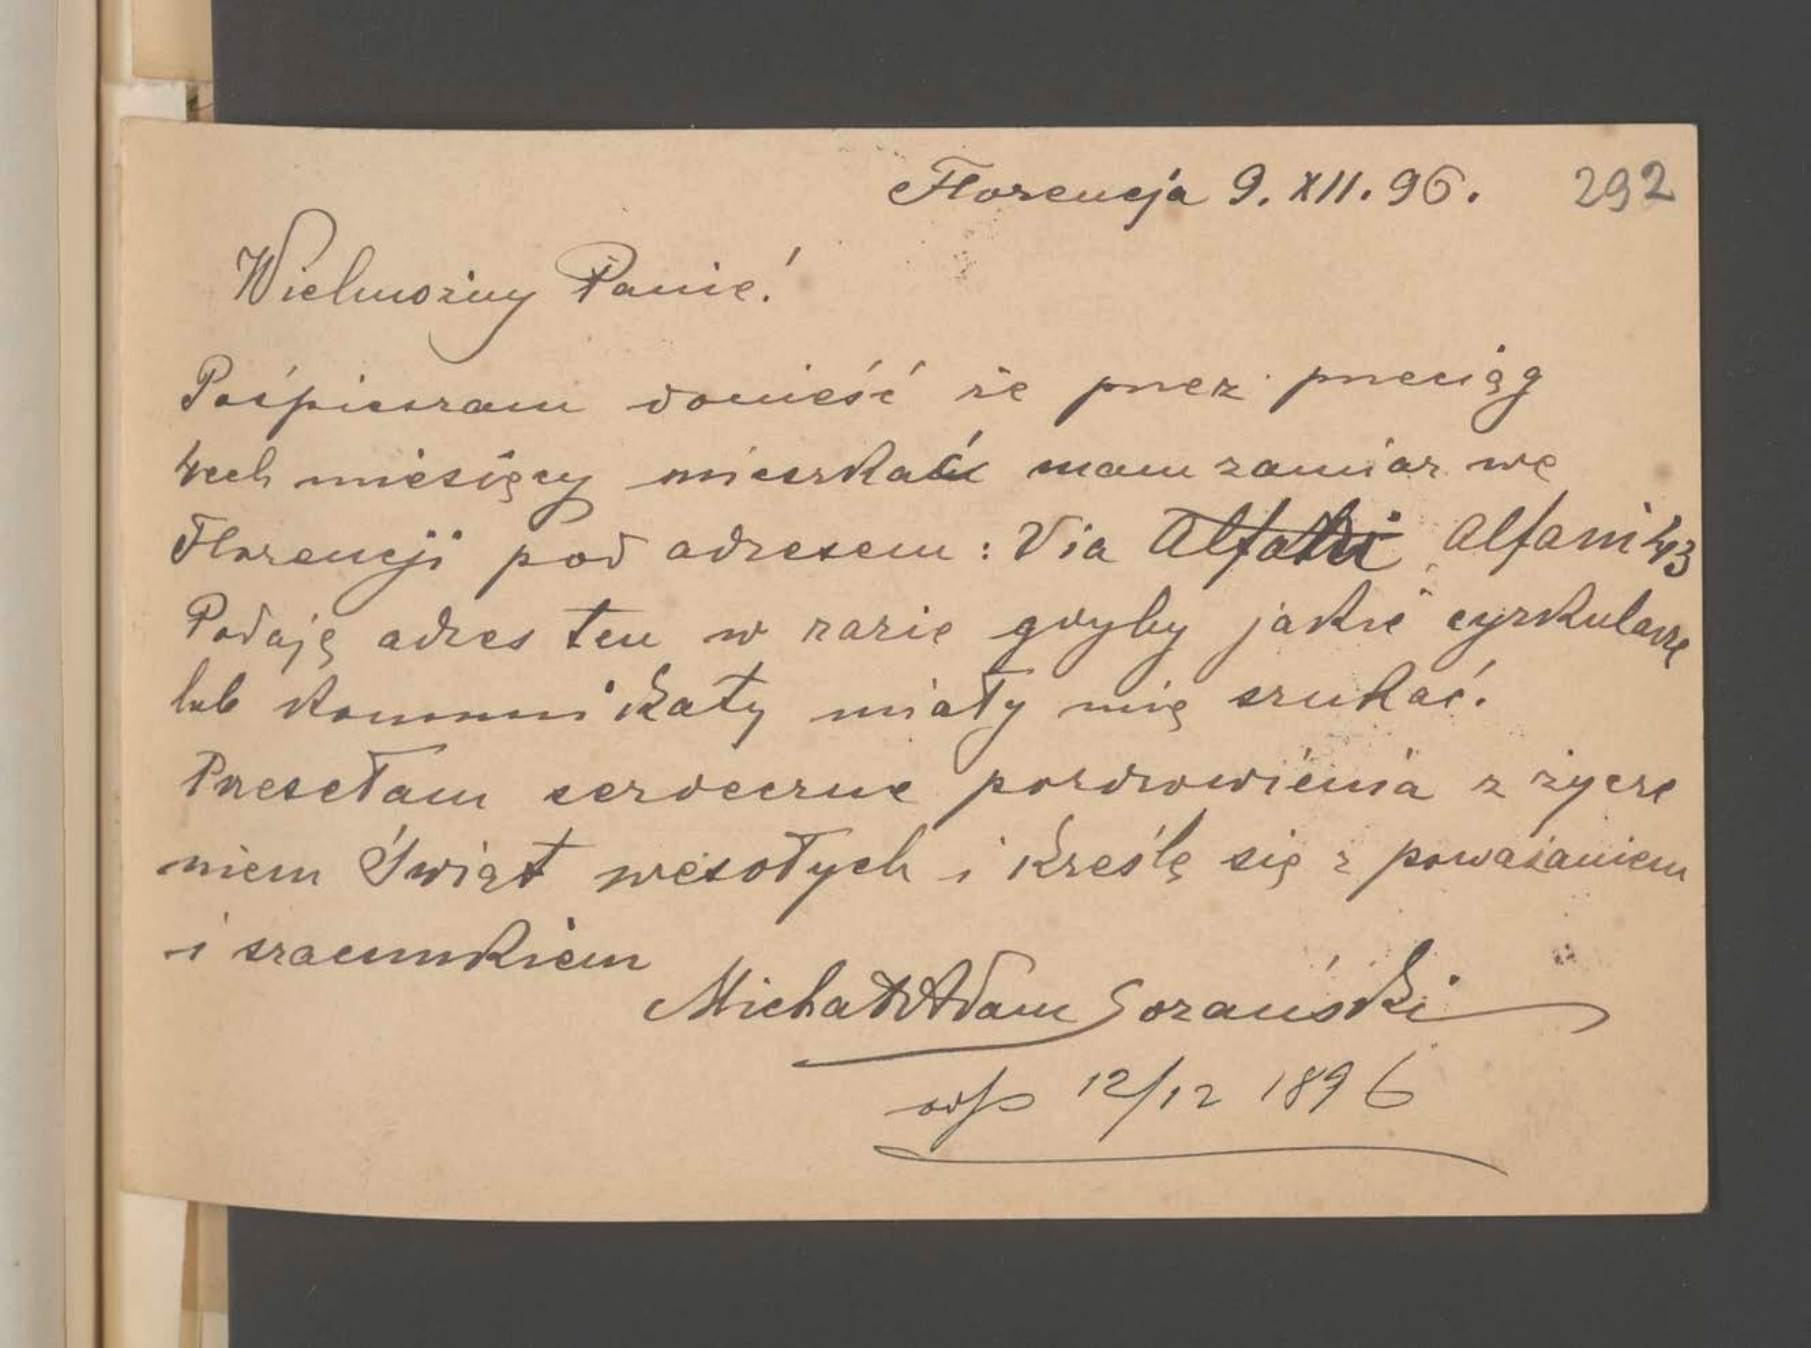 Florencja 9. XII. 96. 292
Wielmożny Panie!
Pośpieszam donieść że przez przeciąg
4ech miesięcy mieszkać mam zamiar we
Florencji pod adresem: Via Alfani 43
Podaję adres ten w razie gdyby jakie cyrkularze
lub kommunikaty miały mię szukać.
Przesełam serdeczne pozdrowienia z życze
niem Świąt wesołych i kreślę się z poważaniem
i szacunkiem
Michał Adam Sozański
odp 12/12 1896